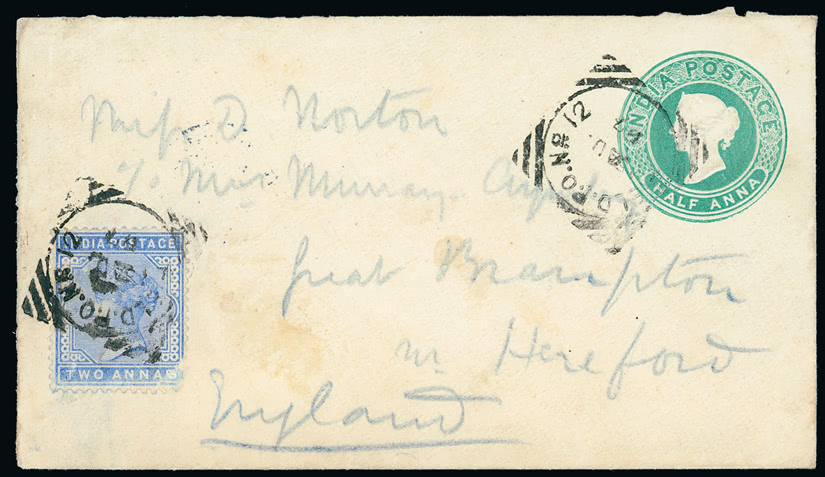 INDIA POSTAGE
HALF ANNA
P.O. No 12
Miss D. Norton
c/o Mrs Murray
Great Brampton
nr Hereford
England
INDIA POSTAGE
TWO ANNAS
P.O. No 12